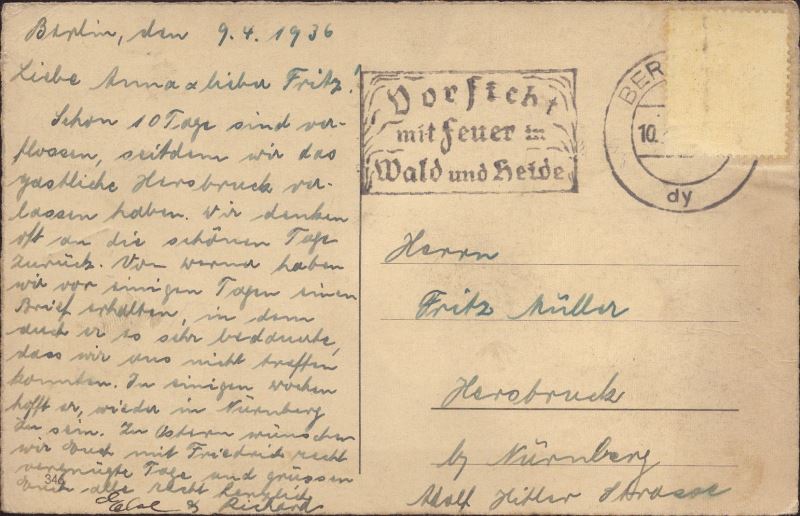 Berlin, den 9.4.1936
Liebe Anna & lieber Fritz!
Schon 10 Tage sind ver-
flossen, seitdem wir das
gastliche Hersbruck ver-
lassen haben. Wir denken
oft an die schönen Tage
zurück. Von Werner haben
wir vor einigen Tagen einen
Brief erhalten, in dem
auch er es sehr bedauerte,
dass wir uns nicht treffen
konnten. In einigen Wochen
hofft er, wieder in Nürnberg
zu sein. Zu Ostern wünschen
wir Euch mit Friedrich recht
vergnügte Tage und grüssen
Euch alle recht herzlich
Else & Richard
346
Vorsicht
mit Feuer in
Wald und Heide
BER
10.
dy
Herrn
Fritz Müller
Hersbruck
b/ Nürnberg
Adolf Hitler Strasse